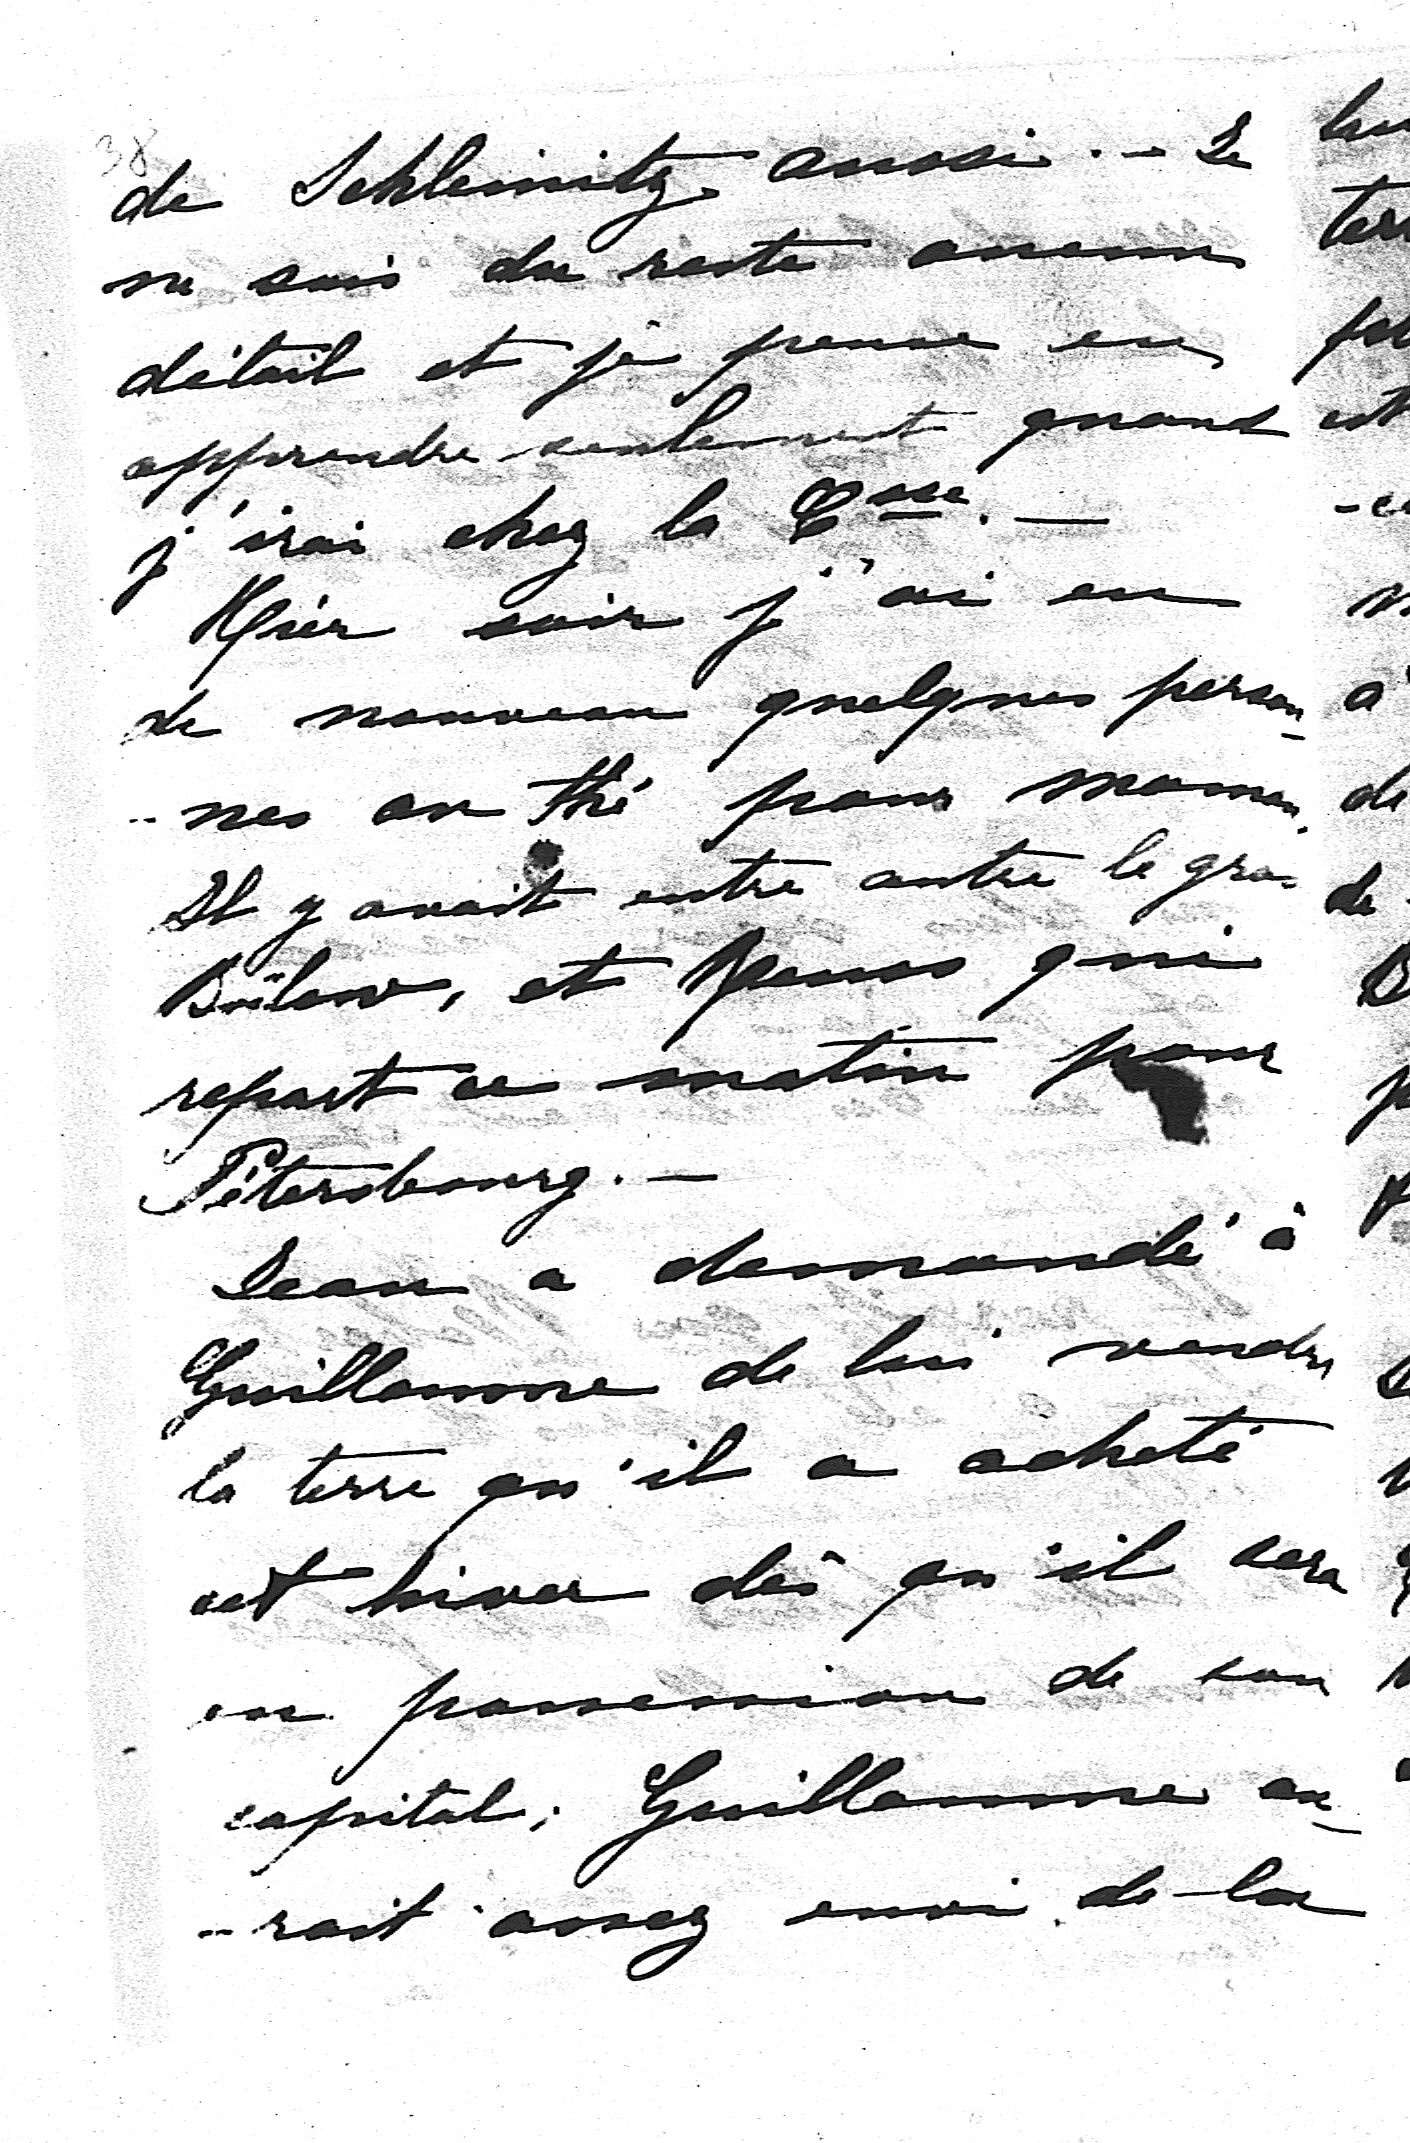 38
de Schleinitz aussi. — Je
ne sais du reste aucun
détail et je pense en
apprendre seulement quand
j'irai chez la Csse. —
Hier soir j'ai eu
de nouveau quelques person-
-nes au thé pour maman.
Il y avait entre autre le gros
Bülow, et Reuss qui
repart ce matin pour
Pétersbourg. —
Jean a demandé à
Guillaumme de lui vendre
la terre qu'il a acheté
cet hiver dès qu'il sera
en possession de son
capital; Guillaumme au-
-rait assez envi de la